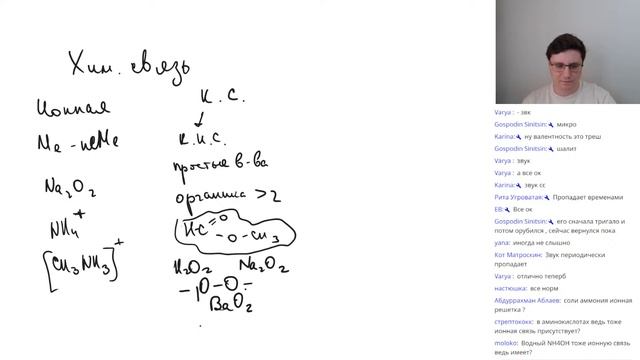 Хим. связь
Ионная
Ме - неМе
Na2O2
NH4+
[CH3NH3]+
К.С.
К.Н.С.
простые в-ва
органика >2
H-C=O
-O-CH3
H2O2 Na2O2
-O-O-
BaO2
Varya : - звк
Gospodin Sinitsin: микро
Karina: ну валентность это треш
Gospodin Sinitsin: шалит
Varya : звук
Varya : а все ок
Karina: звук сс
Рита Угроватая: Пропадает временами
ЕВ: Все ок
Gospodin Sinitsin: его сначала тригало и
потом орубился , сейчас вернулся пока
yana: иногда не слышно
Кот Матроскин: Звук периодически
пропадает
Varya : отлично теперб
настюшка: все норм
Абдуррахман Аблаев: соли аммония ионная
решетка ?
стрептококк: в аминокислотах ведь тоже
ионная связь присутствует?
moloko: Водный NH4OH тоже ионную связь
ведь имеет?